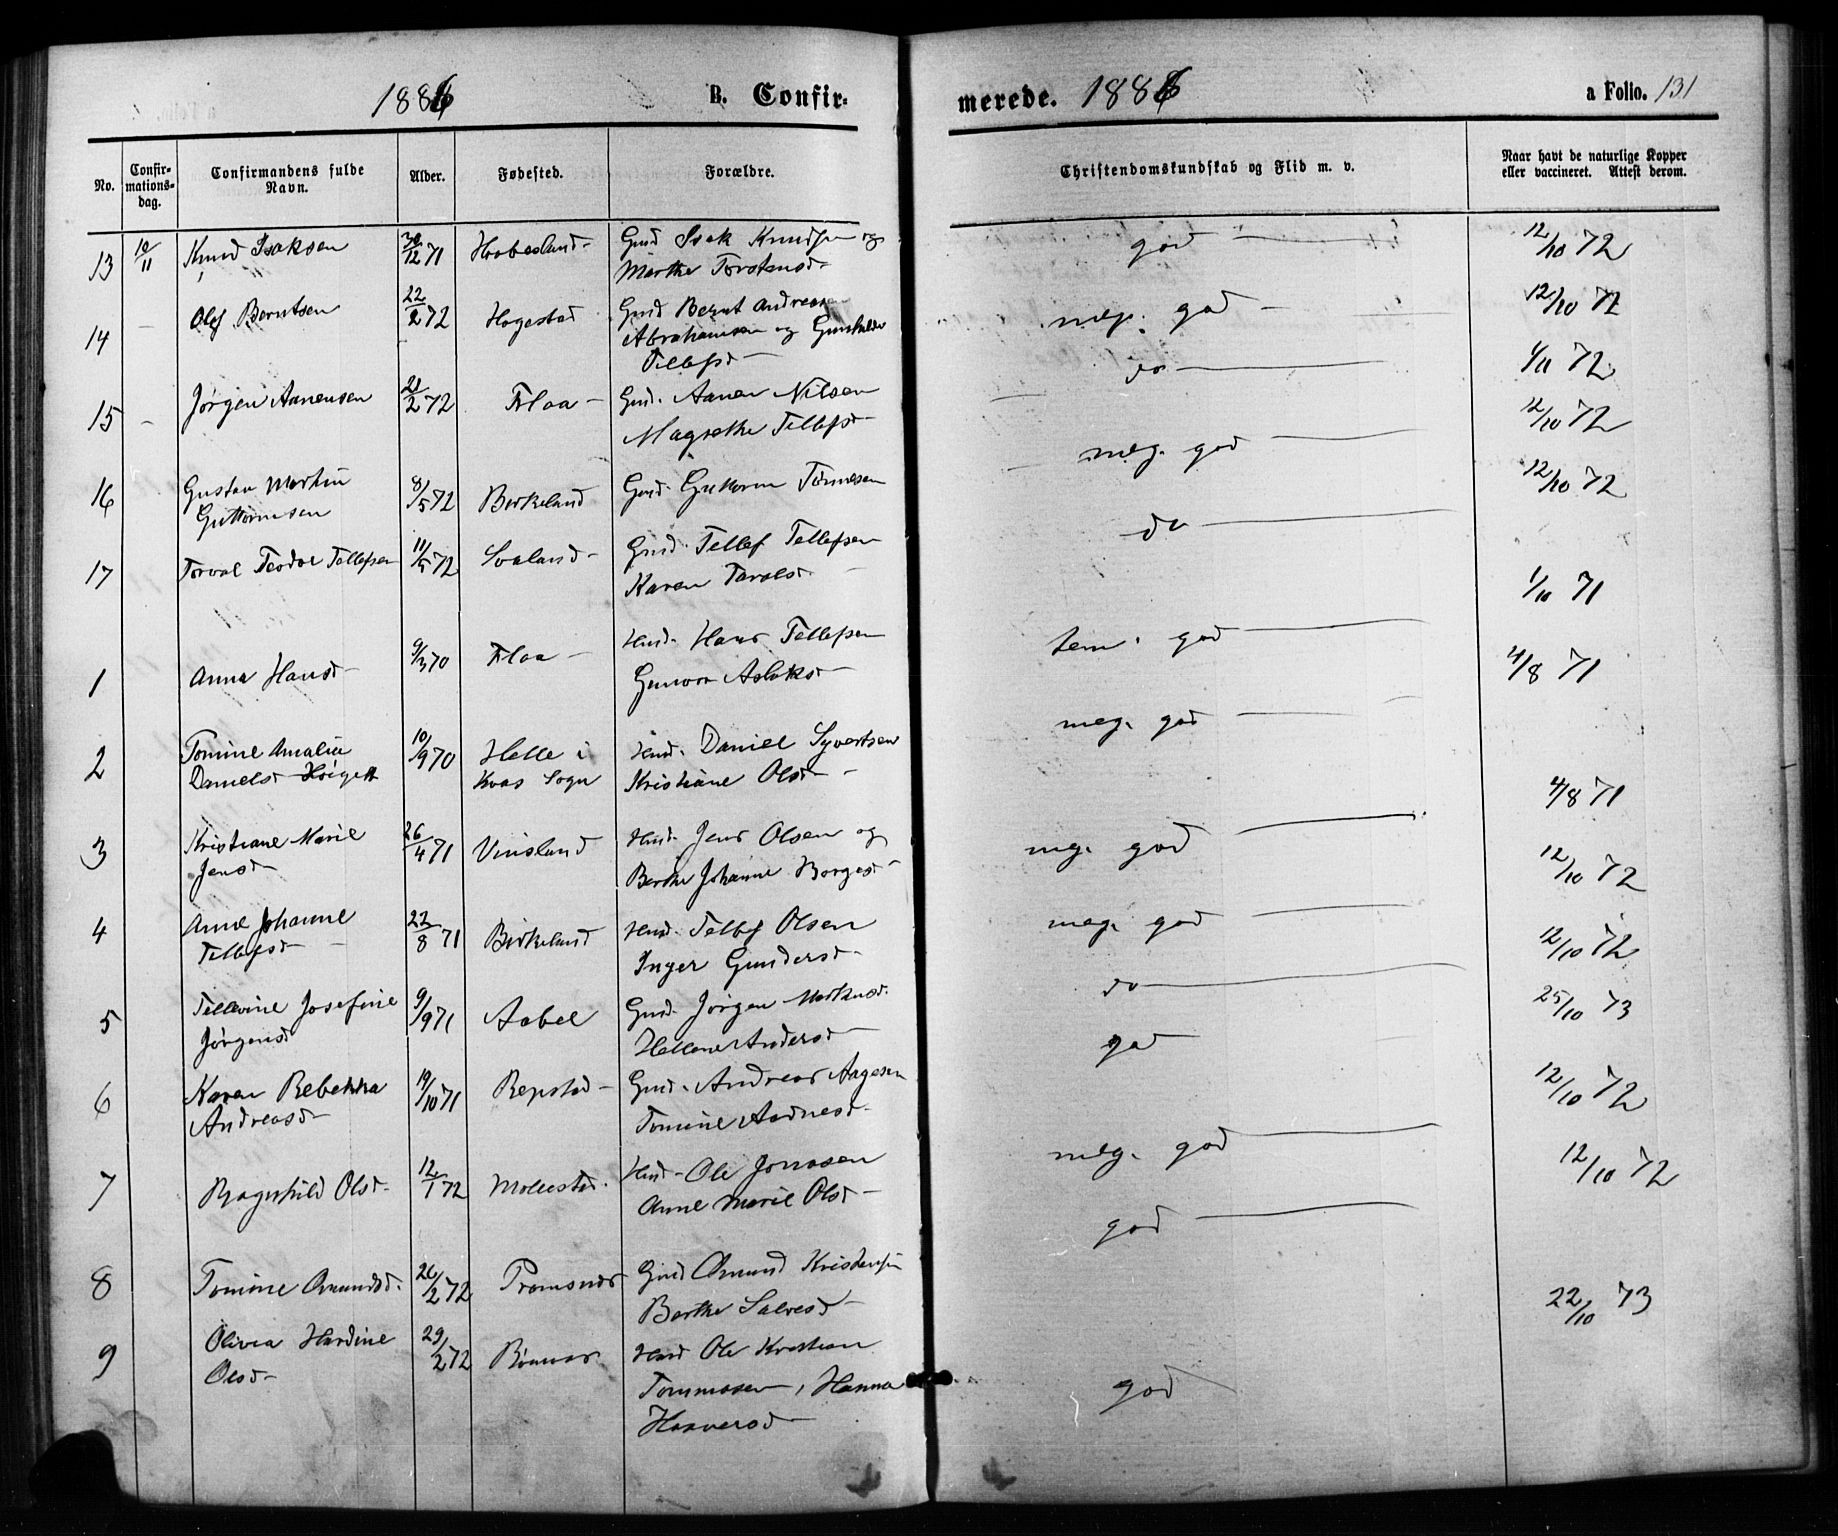 1886 B. Confir-
merede. 1886 a Folio. 131
No.
Confir-
mations-
dag.
Confirmandens fulde
Navn.
Alder.
Fødested.
Forældre.
Christendomskundskab og Flid m. v.
Naar havt de naturlige Kopper
eller vaccineret. Attest derom.
13 10/11 Knud Isaksen 12 71 Gmd Isak Knudsen og god 12/10 72
Marthe Torstensd
14 Olef Berntsen 22/2 72 Hogestad Gmd Bernt Andreas meg. god 12/10 72
Abrahamsen og Gunhilde
Tellefsd
15 Jørgen Aanensen 2 72 Flaa Gmd. Aanen Nilsen do 4/11 72
Magrethe Tellefsd 12/10 72
16 Gustav Martin 8/5 72 Birkeland Gmd. Guttorm Tønnesen meg. god 12/10 72
Guttormsen
17 Torval Teodor Tellefsen 11/5 72 Svaland Gmd. Tellef Tellefsen do
Karen Taralsd 1/10 71
1 Anna Hansd 9/3 70 Flaa Hmd. Hans Tellefsen tem. god
Gunvor Aslaksd 4/8 71
2 Tomine Amalia 10/9 70 Helle i Hmd. Daniel Syvertsen meg. god
Danielsd Kvas Sogn Kristiane Olsd
4/8 71
3 Kristiane Marie 26/4 71 Vinsland Hmd. Jens Olsen og meg. god
Jensd Berthe Johanne Borgesd 12/10 72
4 Anne Johanne 22/8 71 Birkeland Hmd. Tellef Olsen meg. god
Tellefsd Inger Gundersd 12/10 72
5 Tellevine Josefine 9/9 71 Aabel Gmd. Jørgen do 25/10 73
Jørgensd Hellene Andersd
6 Karen Rebekka 19/10 71 Repstad Gmd. Andreas Aagesen god 12/10 72
Andreasd Tomine Aadnesd
7 Ragnhild Olsd 12/1 72 Mollestad Hmd. Ole Jonasen meg. god 12/10 72
Anne Marie Olsd
8 Tomine Omundsd. 26/2 72 Gmd Omund Kristensen god
Berthe Salvesd 22/10 73
9 Olivia Hardine 29/2 72 Hmd Ole Kristian god
Olsd Tommasen, Hanna
Haaversd